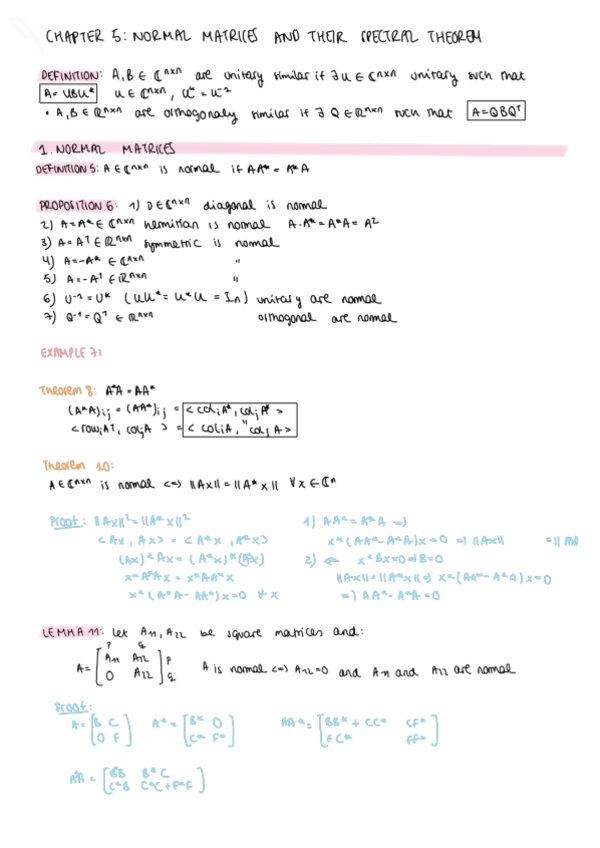 CHAPTER 5: NORMAL MATRICES AND THEIR SPECTRAL THEOREM
DEFINITION: A,B ∈ ℂⁿˣⁿ are unitary similar if ∃ U ∈ ℂⁿˣⁿ unitary such that
A = UBU* U ∈ ℂⁿˣⁿ, U* = U⁻¹
• A,B ∈ ℝⁿˣⁿ are orthogonaly similar if ∃ Q ∈ ℝⁿˣⁿ such that A = QBQᵀ
1. NORMAL MATRICES
DEFINITION 5: A ∈ ℂⁿˣⁿ is normal if AA* = A*A
PROPOSITION 6: 1) D ∈ ℂⁿˣⁿ diagonal is normal
2) A = A* ∈ ℂⁿˣⁿ hermitian is normal A·A* = A*A = A²
3) A = Aᵀ ∈ ℝⁿˣⁿ symmetric is normal
4) A = -A* ∈ ℂⁿˣⁿ "
5) A = -Aᵀ ∈ ℝⁿˣⁿ "
6) U⁻¹ = U* (UU* = U*U = Iₙ) unitary are normal
7) Q⁻¹ = Qᵀ ∈ ℝⁿˣⁿ orthogonal are normal
EXAMPLE 7:
Theorem 8: A*A = AA*
(A*A)ij = (AA*)ij = < colᵢA*, colⱼA* >
< rowᵢAᵀ, colⱼA > = < colᵢA, colⱼA >
Theorem 10:
A ∈ ℂⁿˣⁿ is normal <=> ||Ax|| = ||A*x|| ∀x ∈ ℂⁿ
Proof: ||Ax||² = ||A*x||² 1) AA* = A*A =>
<Ax, Ax> = <A*x, A*x> x*(AA* - A*A)x = 0 => ||Ax|| = ||
(Ax)*Ax = (A*x)*(A*x) 2) <= x*Bx = 0 => B = 0
x*A*Ax = x*AA*x ||Ax|| = ||A*x|| => x*(AA* - A*A)x = 0
x*(A*A - AA*)x = 0 ∀x => AA* - A*A = 0
LEMMA 11: Let A₁₁, A₂₂ be square matrices and:
p q
A = [A₁₁ A₁₂] p A is normal <=> A₁₂ = 0 and A₁₁ and A₂₂ are normal
[0 A₂₂] q
Proof:
A = [B C] A* = [B* 0] AA* = [BB* + CC* CF*]
[0 F] [C* F*] [FC* FF*]
A*A = [B*B B*C]
[C*B C*C + F*F]